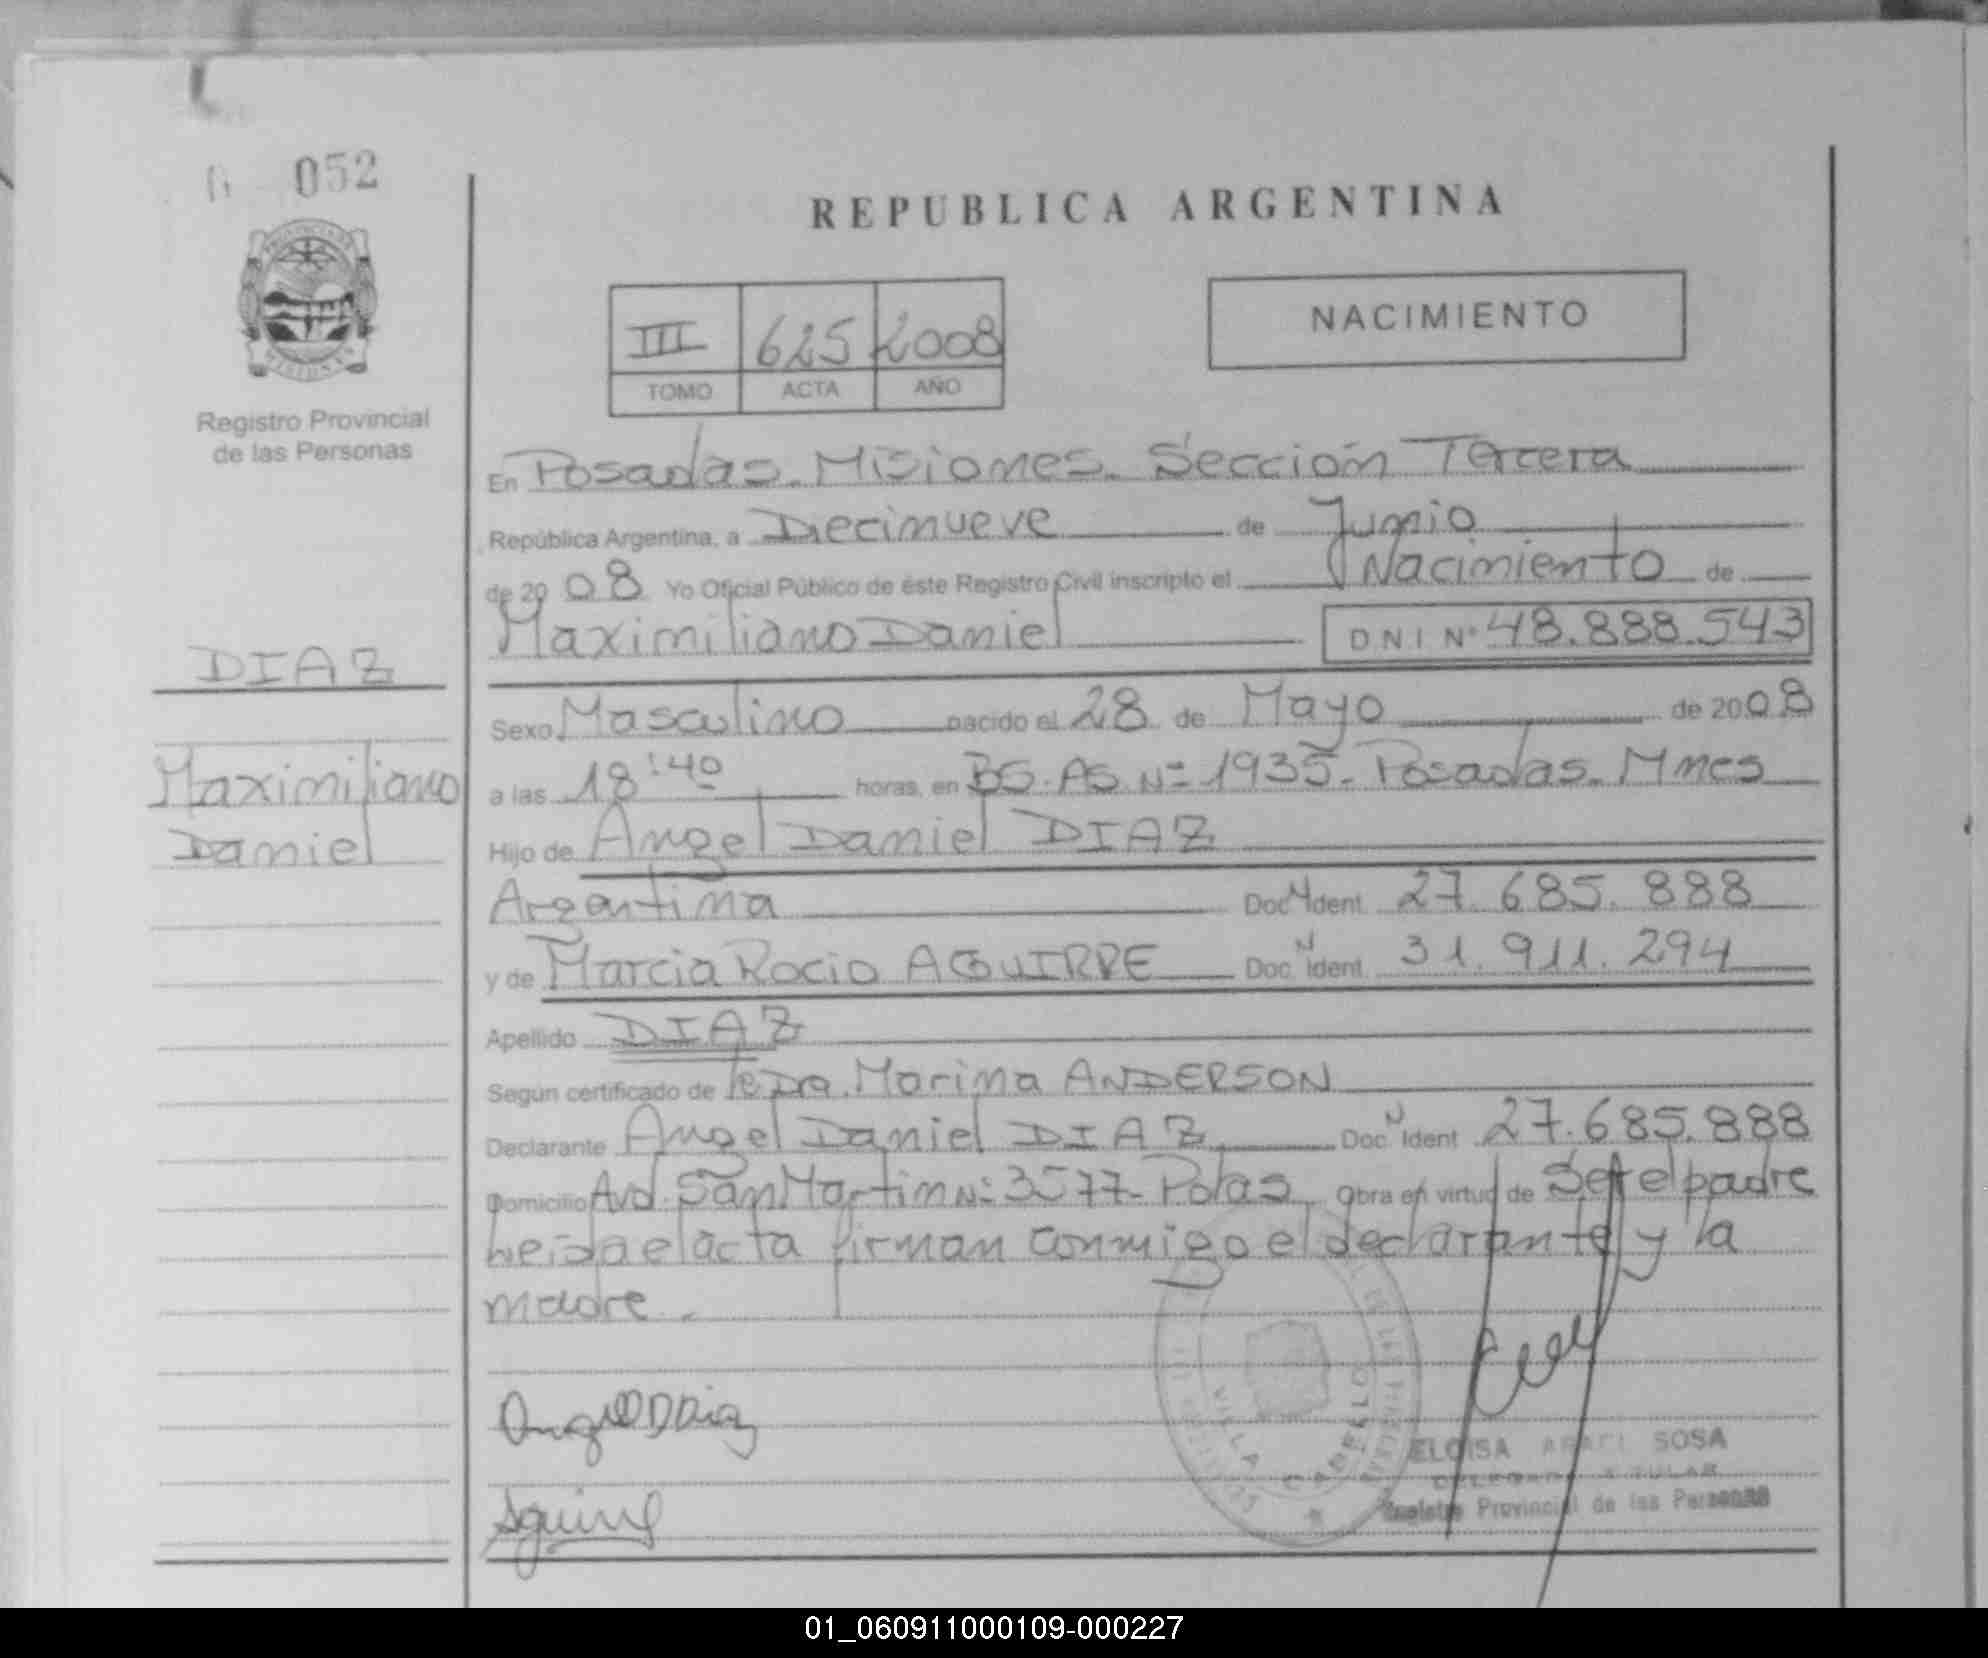 052
REPUBLICA ARGENTINA
III 625 2008
TOMO ACTA AÑO
NACIMIENTO
Registro Provincial
de las Personas
En Posadas. Misiones. Sección Tercera
República Argentina, a Diecinueve de Junio
de 2008 Yo Oficial Público de éste Registro Civil inscripto el Nacimiento de
Maximiliano Daniel DNI Nº 48.888.543
DIAZ
Maximiliano
Daniel
Sexo Masculino nacido el 28 de Mayo de 2008
a las 18:40 horas, en BS. AS. Nº 1935. Posadas. Mnes
Hijo de Angel Daniel DIAZ
Argentina Doc N Ident 27.685.888
y de Marcia Rocio AGUIRRE Doc N Ident 31.911.294
Apellido DIAZ
Según certificado de la Dra. Marina ANDERSON
Declarante Angel Daniel DIAZ Doc N Ident 27.685.888
Domicilio Avd. San Martin Nº 3577- Pdas Obra en virtud de Ser el padre
leida el acta firman conmigo el declarante y la
madre.
Angel D Diaz
Aguirre
VILLA CABELLO
ELOISA ARACI SOSA
DELEGADA TITULAR
Registro Provincial de las Personas
01_060911000109-000227